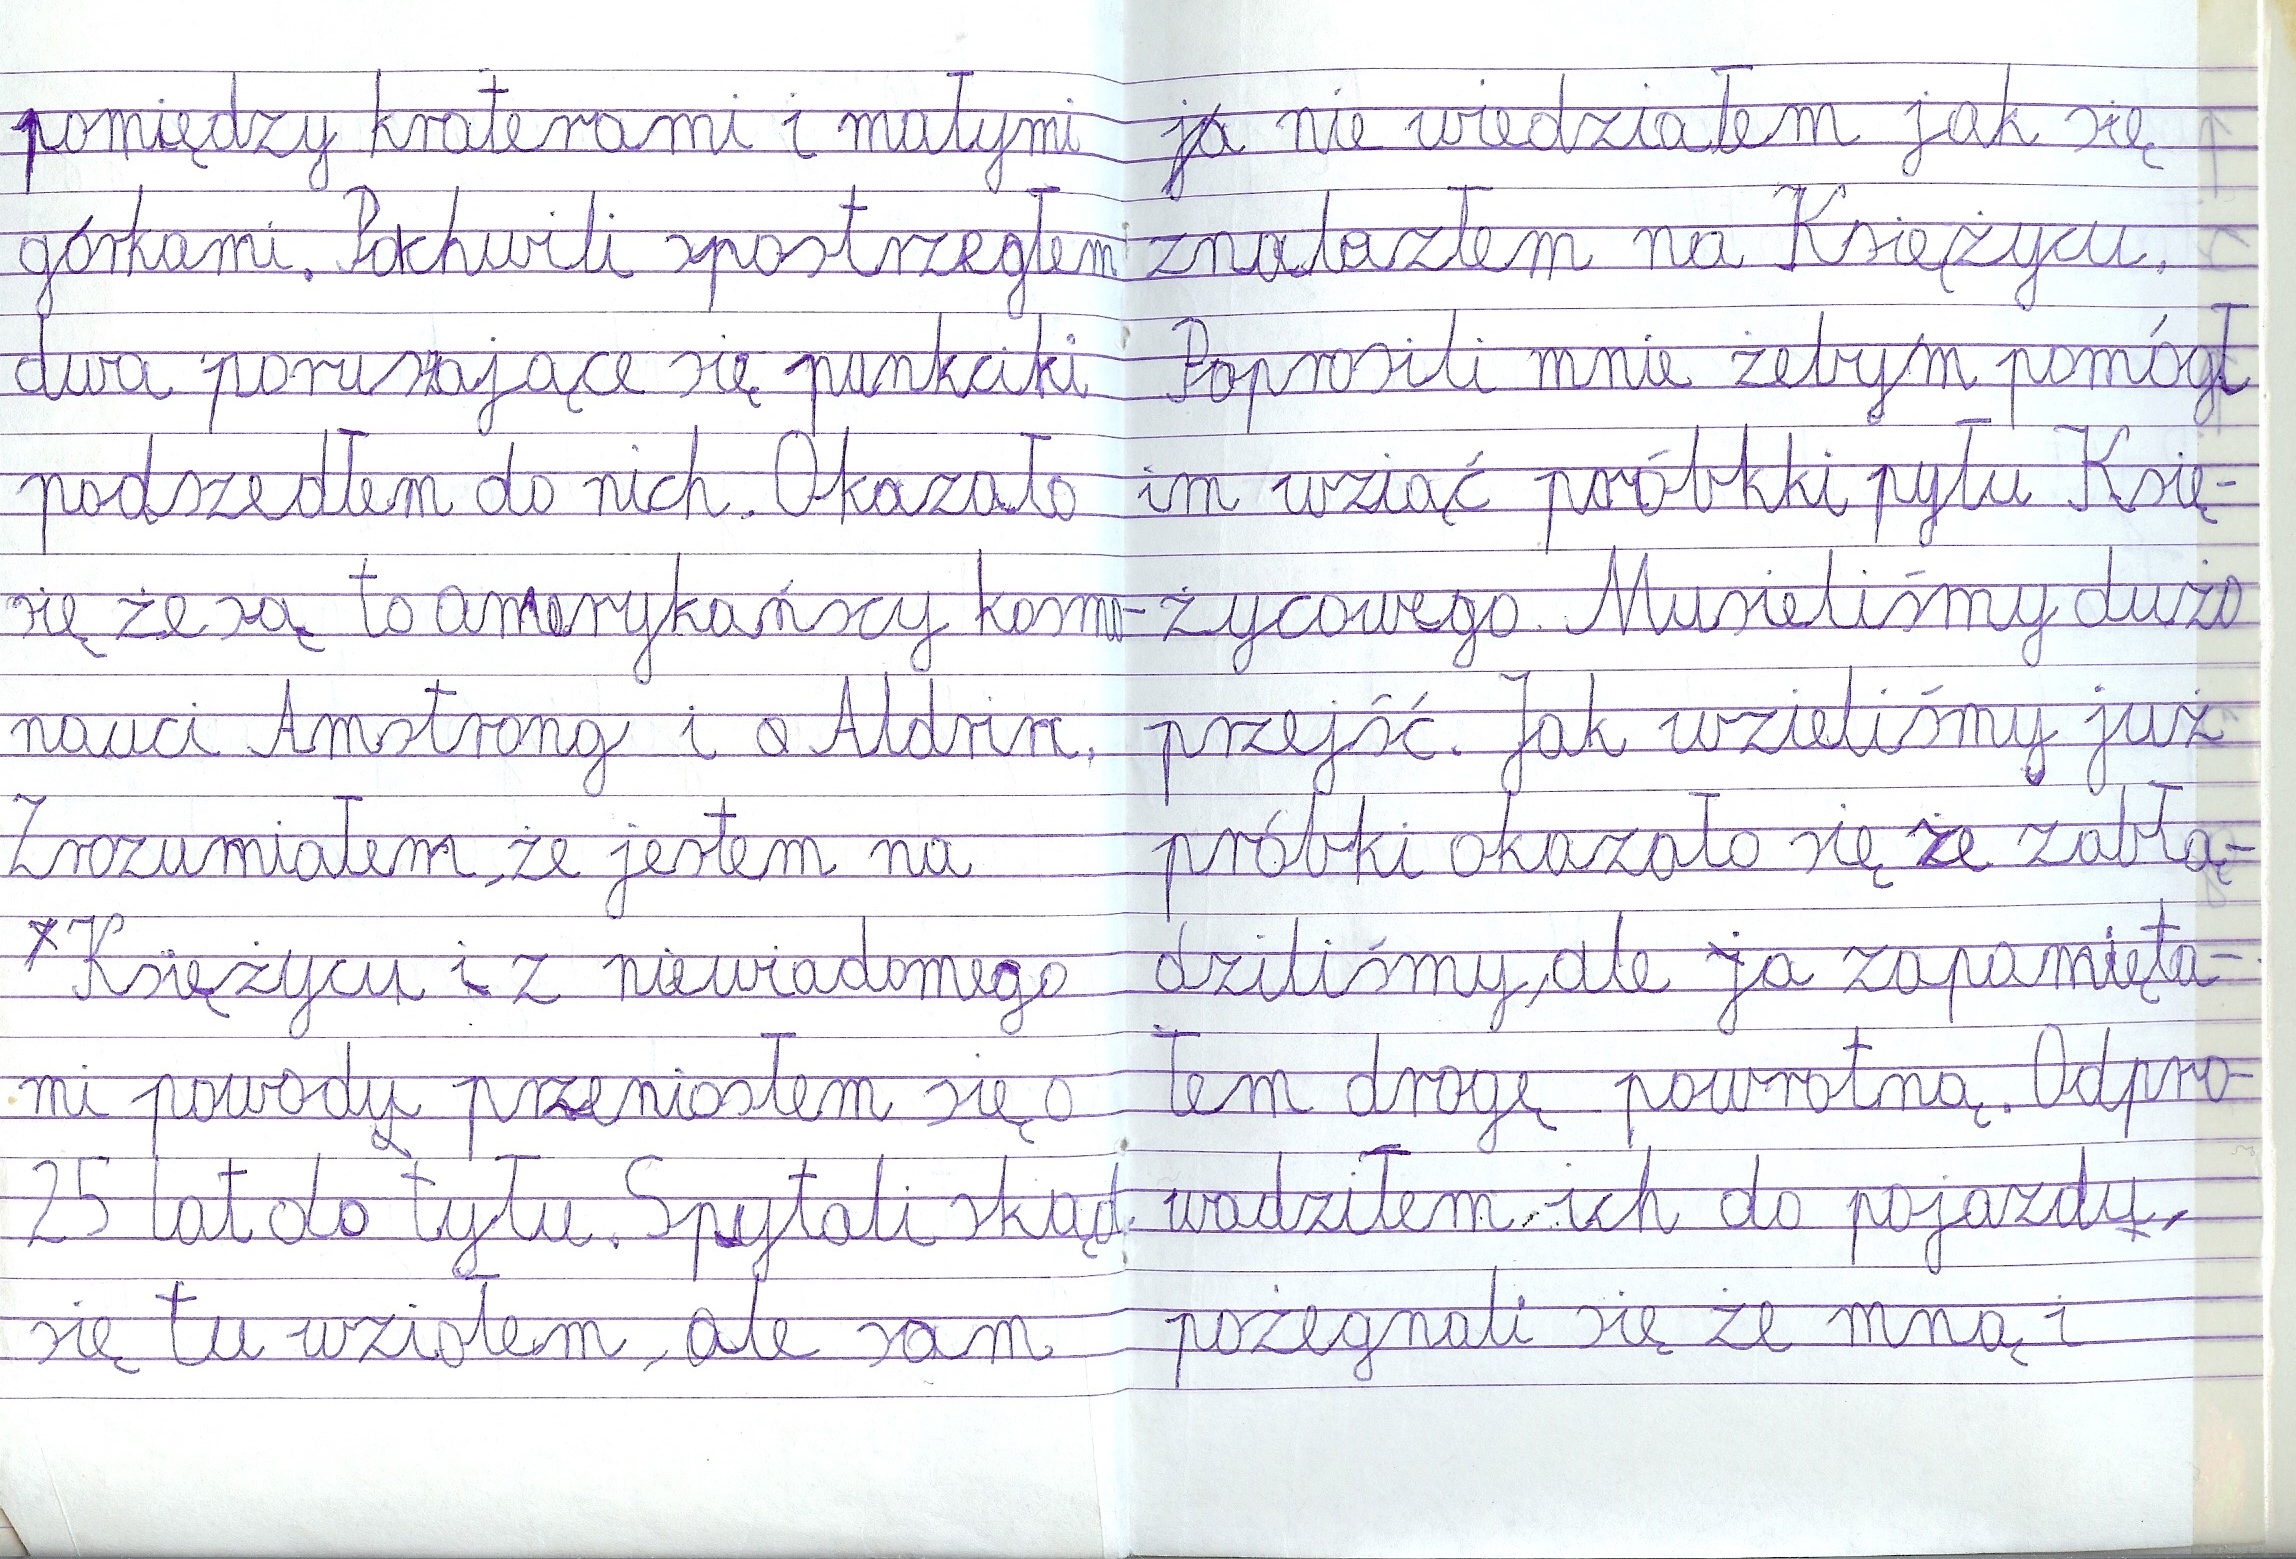 pomiędzy kraterami i małymi
górkami. Po chwili spostrzegłem
dwa poruszające się punkciki
podszedłem do nich. Okazało
się że są to amerykańscy kosmo-
nauci Amstrong i a Aldrin.
Zrozumiałem, że jestem na
Księżycu i z niewiadomego
mi powody przeniosłem się o
25 lat do tyłu. Spytali skąd
się tu wziołem, ale sam
ja nie wiedziałem jak się
znalazłem na Księżycu.
Poprosili mnie żebym pomógł
im wziąć próbkki pyłu Księ-
życowego. Musieliśmy dużo
przejść. Jak wzieliśmy już
próbki okazało się że zabłą-
dziliśmy, ale ja zapamięta-
łem drogę powrotną. Odpro-
wadziłem ich do pojazdu,
pożegnali się że mną i